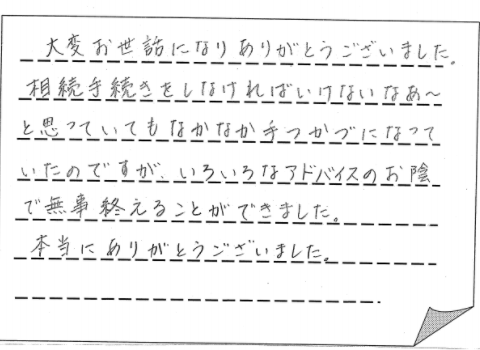 大変お世話になりありがとうございました。
相続手続きをしなければいけないなあ～
と思っていてもなかなか手つかづになって
いたのですが、いろいろなアドバイスのお陰
で無事終えることができました。
本当にありがとうございました。